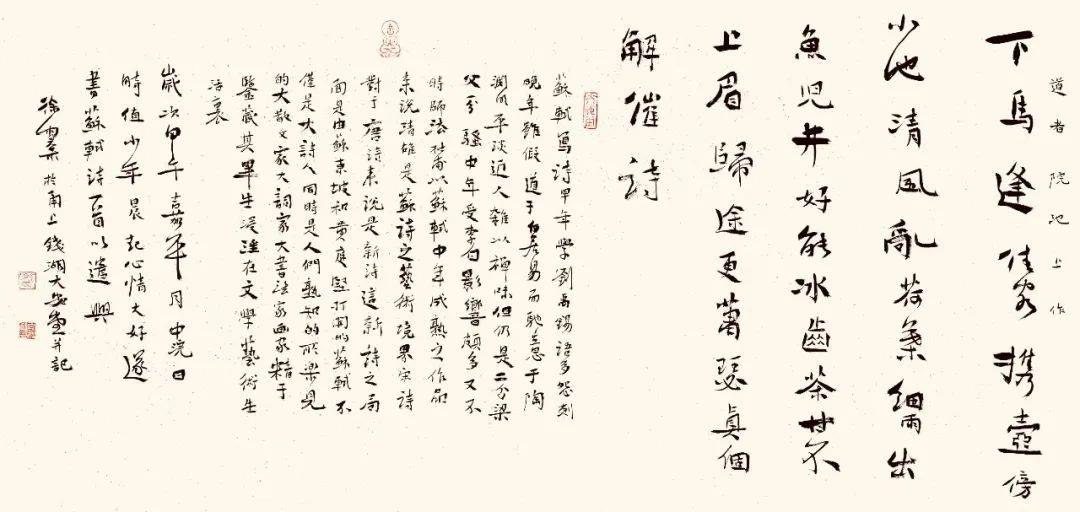 道者院池上作
下馬逢佳客携壺傍
小池清風亂荷葉細雨出
魚兒井好能冰齒茶甘不
上眉歸途更蕭瑟真個
解催詩
蘇軾寫詩早年學劉禹錫語多怨刻
晚年雖假道于白居易而馳意于陶
淵明平淡近人雜以禪味但仍是二分梁
父分騷中年受李白影響頗多又不
時師法杜甫以蘇軾中年成熟之作品
來說清雄是蘇詩之藝術境界宋詩
對于唐詩來說是新詩這新詩之局
面是由蘇東坡和黃庭堅打開的蘇軾不
僅是大詩人同時是人們熟知的所樂見
的大散文家大詞家大書法家畫家精于
鑒藏其畢生浸淫在文學藝術生
活裏
歲次甲午嘉平月中浣日
時值小年晨起心情大好遂
書蘇軾詩百首以遣興
徐於甬上錢湖大堂并記